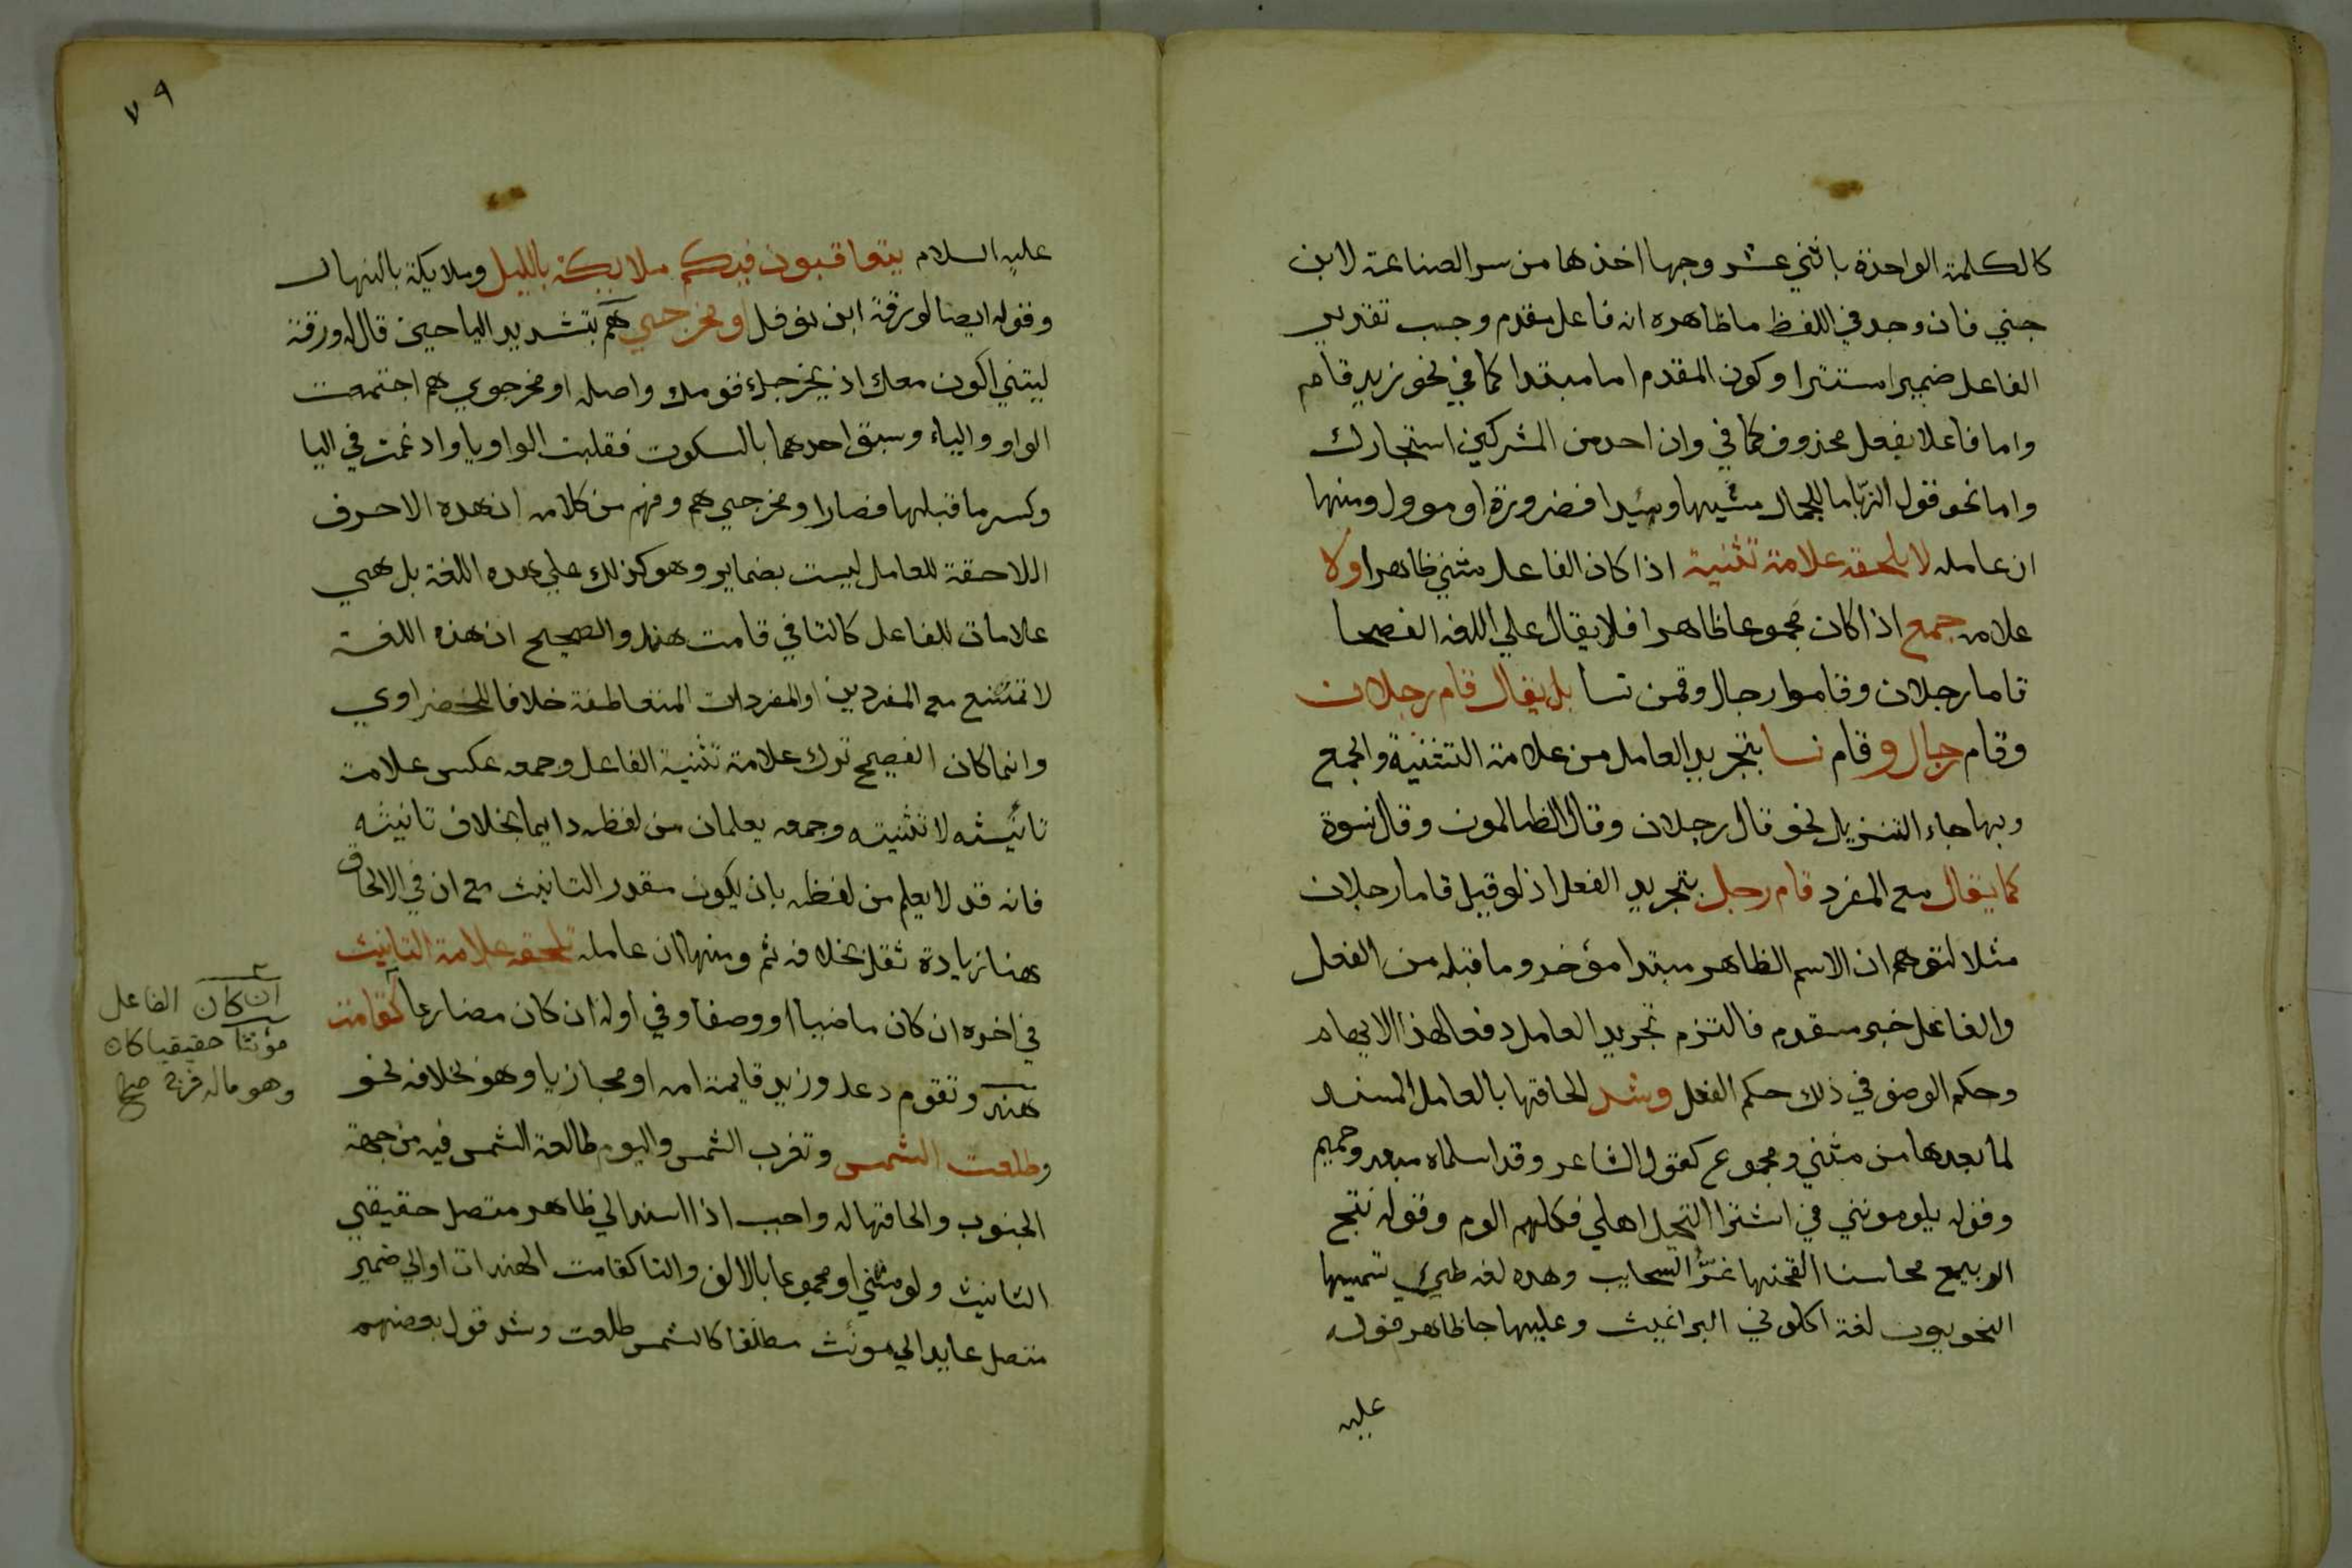 كالكلمة الواحدة باثني عشر وجها اخذها من سر الصناعة لابن
جني فان وجد في اللفظ ما ظاهره انه فاعل مقدم وجب تقدير
الفاعل ضميرا مستترا وكون المقدم اما مبتدا كما في نحو زيد قام
واما فاعلا بفعل محذوف كما في وان احد من المشركين استجارك
واما نحو قول الزبّا ما للجمال مشيها وئيدا فضرورة او موول ومنها
ان عامله لا يلحقه علامة تثنية اذا كان الفاعل مثني ظاهرا ولا
علامه جمع اذا كان مجموعا ظاهرا فلا يقال علي اللغه الفصحا
قاما رجلان وقاموا رجال وقمن نسا بل يقال قام رجلان
وقام رجال وقام نسا بتجريد العامل من علامة التثنية والجمع
وبها جاء التنزيل نحو قال رجلان وقال الظالمون وقال نسوة
كما يقال مع المفرد قام رجل بتجريد الفعل اذ لو قيل قاما رجلان
مثلا لتوهم ان الاسم الظاهر مبتدا مؤخر وما قبله من الفعل
والفاعل خبر مقدم فالتزم تجريد العامل دفعا لهذا الايهام
وحكم الوصف في ذلك حكم الفعل وشد الحاقها بالعامل المسند
لما بعدها من مثني ومجموع كقول الشاعر وقد اسلماه مبعد وحميم
وقوله يلومونني في اشترا النخيل اهلي فكلهم الوم وقوله نتج
الربيع محاسنا القحنها غرّ السحايب وهده لغه طيئ تسميها
النحويون لغة اكلوني البراغيث وعليها جا ظاهر قوله
عليه
٧٩
عليه السلام يتعاقبون فيكم ملايكة بالليل وملايكة بالنهار
وقوله ايضا لورقة ابن نوفل او مخرجي هم بتشديد اليا حين قال له ورقة
ليتني اكون معك اذ يخرجك قومك واصله او مخرجوي هم اجتمعت
الواو والياء وسبق احدهما بالسكون فقلبت الواو يا وادغمت في اليا
وكسر ما قبلها فصار او مخرجي هم وفهم من كلامه ان هده الاحرف
اللاحقة للعامل ليست بضماير وهو كذلك علي هده اللغة بل هي
علامات للفاعل كالتا في قامت هند والصحيح ان هذه اللغة
لا تمتنع مع المفردين او المفردات المتعاطفة خلافا للخضراوي
وانما كان الفصيح ترك علامة تثنية الفاعل وجمعه عكس علامة
تانيثه لا تثنيته وجمعه يعلمان من لفظه دايما بخلاف تانيثه
فانه قد لا يعلم من لفظه بان يكون مقدر التانيث مع ان في الالحاق
هنا زيادة ثقل بخلافه ثم ومنها ان عامله تلحقه علامة التانيث
في اخره ان كان ماضيا او وصفا وفي اوله ان كان مضارعا كقامت
هند وتقوم دعد وزيد قايمة امه او مجازيا وهو بخلافه نحو
وطلعت الشمس وتغرب الشمس واليوم طالعة الشمس فيه من جهة
الجنوب والحاقها له واجب اذا اسند الي ظاهر متصل حقيقي
التانيث ولو مثني او مجموعا بالالف والتا كقامت الهندات او الي ضمير
متصل عايد الي مونث مطلقا كالشمس طلعت وشد قول بعضهم
ان كان الفاعل
مؤنثا حقيقيا كان
وهو ماله فرج صح